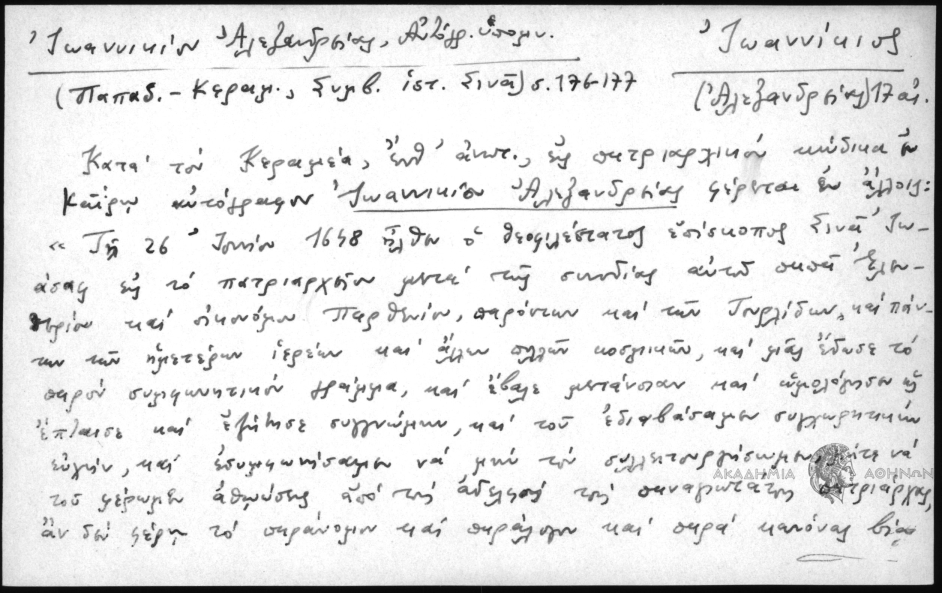 Ἰωαννικίου Ἀλεξανδρείας, Αὐτόγρ. ὑπομν.
Ἰωαννίκιος
(Παπαδ. - Κεραμ., Συμβ. ἱστ. Σινᾶ) σ. 176-177
(Ἀλεξανδρείας) 17 αἰ.
Κατά τόν Κεραμέα, ἔνθ' ἀνωτ., εἰς πατριαρχικόν κώδικα ἐν
Καΐρῳ αὐτόγραφον Ἰωαννικίου Ἀλεξανδρείας φέρεται ἐν ἄλλοις:
« Τῇ 26 Ἰουνίου 1648 ἦλθεν ὁ θεοφιλέστατος ἐπίσκοπος Σινᾶ Ἰω-
άσαφ εἰς τό πατριαρχεῖον μετά τῆς συνοδίας αὐτοῦ παπᾶ Ἐλευ-
θερίου και οἰκονόμου Παρθενίου, παρόντων καί τῶν Τουρλίδων, καί πάν-
των τῶν ἡμετέρων ἱερέων καί ἄλλων πολλῶν κοσμικῶν, καί μᾶς ἔδωσε τό
παρόν συμφωνητικόν γράμμα, καί ἔβαλε μετάνοιαν καί ὡμολόγησεν ὡς
ἔπταισε καί ἐζήτησε συγγνώμην, καί τοῦ ἐδιαβάσαμεν συγχωρητικήν
εὐχήν, καί ἐσυμφωνήσαμεν νά μήν τόν συλλειτουργήσωμεν, εἴτε νά
τοῦ φέρωμεν ἀθῳώσεις ἀπό τοῦ ἀδελφοῦ τοῦ παναγιωτάτου πατριάρχου,
ἄν δέν φέρῃ τό παράνομον καί παράλογον καί παρά κανόνας
ΑΚΑΔΗΜΙΑ ΑΘΗΝΩΝ